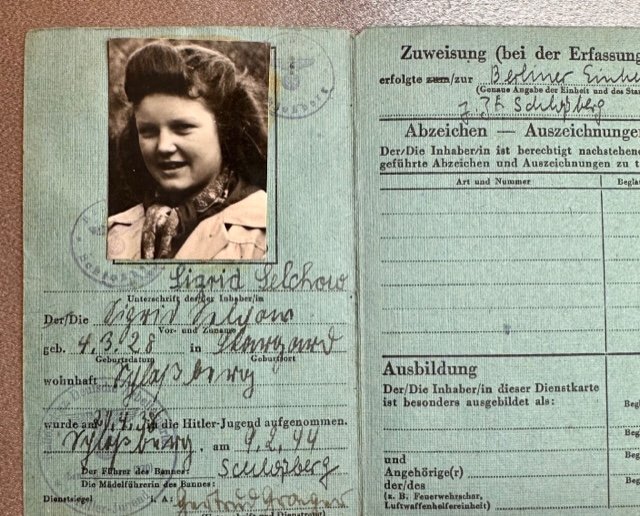 Sigrid Selchow
Unterschrift des/der Inhaber/in
Der/Die Sigrid Selchow
Vor- und Zuname
geb. 4.3.28 in Stargard
Geburtsdatum Geburtsort
wohnhaft Schloßberg
wurde am 20.4.38 in die Hitler-Jugend aufgenommen.
Schloßberg, am 9.2.44
Der Führer des Bannes: Schloßberg
Die Mädelführerin des Bannes:
Dienstsiegel i. A: Gertrud
Zuweisung (bei der Erfassung
erfolgte zum/zur Berliner Einhe
(Genaue Angabe der Einheit und des Sta
Schloßberg
Abzeichen — Auszeichnungen
Der/Die Inhaber/in ist berechtigt nachstehend
geführte Abzeichen und Auszeichnungen zu t
Art und Nummer Begla
Ausbildung
Der/Die Inhaber/in dieser Dienstkarte
ist besonders ausgebildet als:
Begl
Beg
und
Angehörige(r)
der/des
(z. B. Feuerwehrschar,
Luftwaffenhelfereinheit)
Beg
Beg